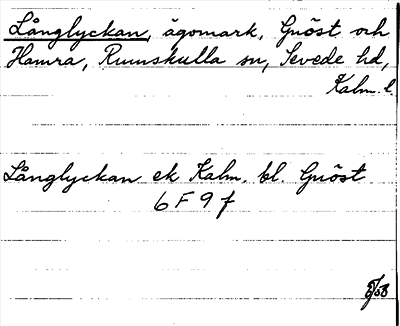 Långlyckan, ägomark, Gnöst och
Hamra, Rumskulla sn, Sevede hd,
Kalm. l.
Långlyckan ek Kalm. bl. Gnöst
6 F 9 f